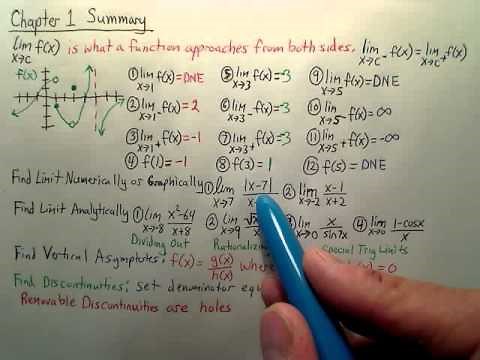 Chapter 1 Summary
lim x→c f(x) is what a function approaches from both sides, lim x→c⁻ f(x) = lim x→c⁺ f(x)
f(x)
① lim x→1 f(x) = DNE ⑤ lim x→3 f(x) = -3 ⑨ lim x→5 f(x) = DNE
② lim x→1⁻ f(x) = 2 ⑥ lim x→3⁻ f(x) = -3 ⑩ lim x→5⁻ f(x) = ∞
③ lim x→1⁺ f(x) = -1 ⑦ lim x→3⁺ f(x) = -3 ⑪ lim x→5⁺ f(x) = -∞
④ f(1) = -1 ⑧ f(3) = 1 ⑫ f(5) = DNE
Find Limit Numerically or Graphically ① lim x→7 |x-7| / x- ② lim x→-2 x-1 / x+2
Find Limit Analytically ① lim x→-8 x²-64 / x+8 ② lim x→9 ③ lim x→0 x / sin7x ④ lim x→0 1-cosx / x
Dividing Out Special Trig Limits
Find Vertical Asymptotes: f(x) = g(x) / h(x) where = 0
Find Discontinuities: set denominator
Removable Discontinuities are holes